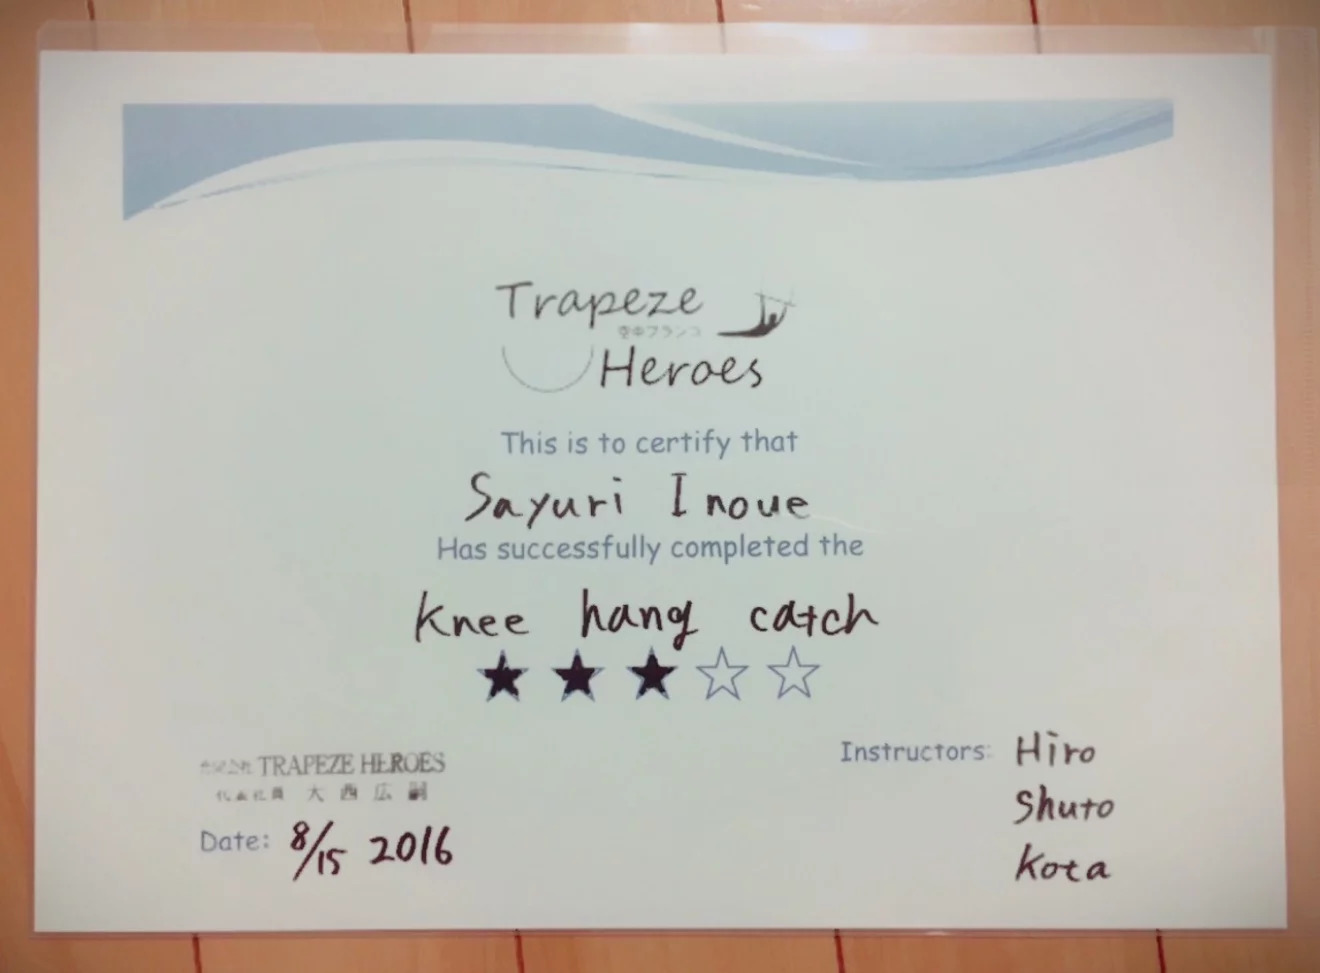 Trapeze
空中ブランコ
Heroes
This is to certify that
Sayuri Inoue
Has successfully completed the
Knee hang catch
合同会社 TRAPEZE HEROES
代表社員 大西広嗣
Date: 8/15 2016
Instructors: Hiro
Shuto
Kota